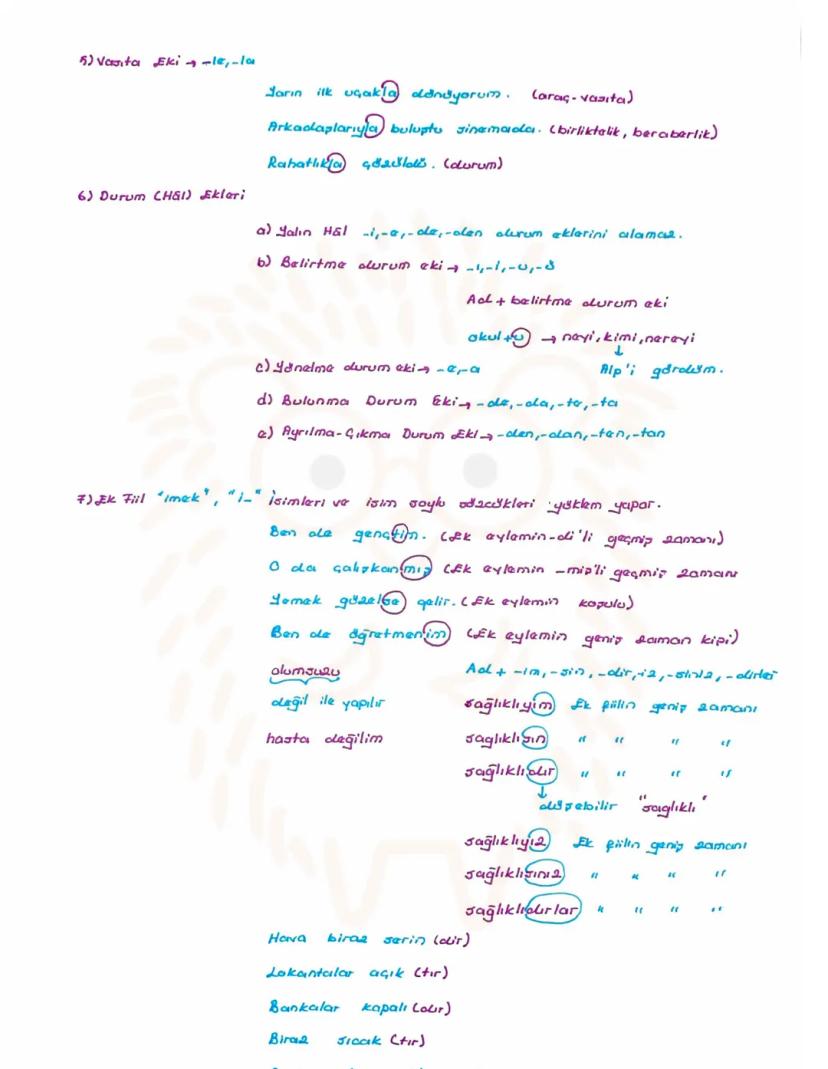 5) Vasıta Eki → -le, -la
Yarın ilk uçakla dönüyorum. (araç-vasıta)
Arkadaşlarıyla buluştu sinemada. (birliktelik, beraberlik)
Rahatlıkla çözüldü. (durum)
6) Durum (Hâl) Ekleri
a) Yalın Hâl -i, -e, -de, -den durum eklerini alamaz.
b) Belirtme durum eki → -ı, -i, -u, -ü
Ad + belirtme durum eki
okul + u → neyi, kimi, nereyi
↓
c) Yönelme durum eki → -e, -a Alp'i gördüm.
d) Bulunma Durum Eki → -de, -da, -te, -ta
e) Ayrılma-Çıkma Durum Eki → -den, -dan, -ten, -tan
7) Ek Fiil "imek", "i-" İsimleri ve isim soylu sözcükleri yüklem yapar.
Ben de gençtim. (Ek eylemin -di'li geçmiş zamanı)
O da çalışkanmış (Ek eylemin -miş'li geçmiş zamanı
Yemek güzelse gelir. (Ek eylemin koşulu)
Ben de öğretmenim (Ek eylemin geniş zaman kipi)
olumsuzu Ad + -im, -sin, -dir, -iz, -siniz, -dirler
değil ile yapılır sağlıklıyım Ek fiilin geniş zamanı
hasta değilim sağlıklısın " " " "
sağlıklıdır " " " "
↓
düşebilir "sağlıklı"
sağlıklıyız Ek fiilin geniş zamanı
sağlıklısınız " " " "
sağlıklıdırlar " " " "
Hava biraz serin (dir)
Lokantalar açık (tır)
Bankalar kapalı (dır)
Biraz sıcak (tır)